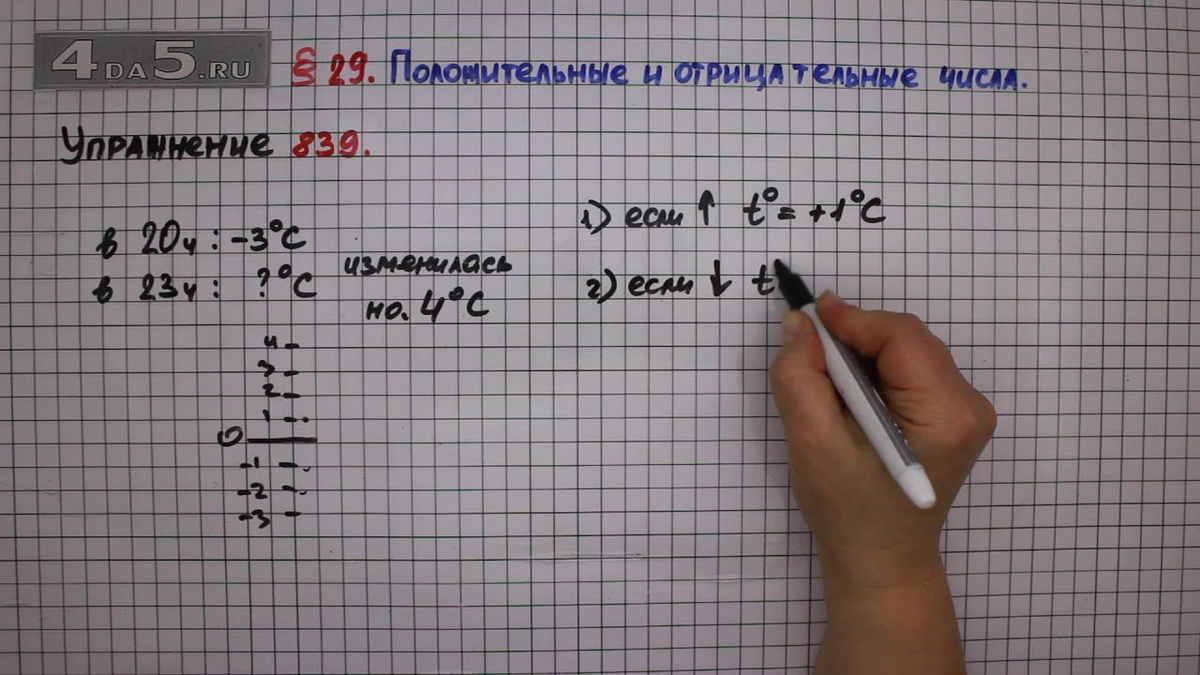 4DA5.RU
§ 29. Положительные и отрицательные числа.
Упражнение 839.
в 20ч : -3°C
в 23ч : ?°C
изменилась
на. 4°C
4
3
2
1
0
-1
-2
-3
1) если ↑ t° = +1°C
2) если ↓ t